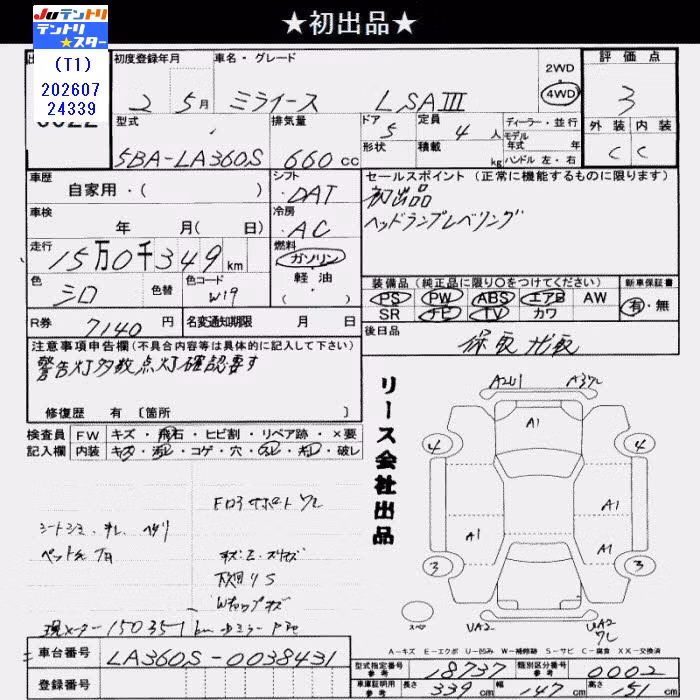 ★初出品★
JUテントリ
テントリ
★スター
(T1)
202607
24339
初度登録年月
車名・グレード
2WD
4WD
評価点
2 5月
ミライース
LSAⅢ
3
型式
排気量
ドア 5
定員 4 人
ディーラー・並行
モデル
年式 年
外装
内装
形状
積載 kg
ハンドル 左・右
5BA-LA360S
660 cc
C
C
車歴
自家用・( )
シフト
DAT
セールスポイント(正常に機能するものに限ります)
初出品
ヘッドランプレベリング
車検
年 月( 日)
冷房
AC
走行
15万0千349 km
燃料
ガソリン
軽・油
( )
色
シロ
色替
色コード
W19
装備品(純正品に限り○をつけてください)
新車保証書
PS PW ABS エアB AW
有・無
SR ナビ TV カワ
R券 7140 円
名変通知期限 月 日
後日品
保取 ナビ取
注意事項申告欄(不具合内容等は具体的に記入して下さい)
警告灯多数点灯確認要す
修復歴 有 〔箇所 〕
検査員
記入欄
FW キズ・飛石・ヒビ割・リペア跡・×要
内装 キズ・汚れ・コゲ・穴・スレ・ネジ・破レ
リース会社出品
A2U1
A3ワレ
A1
4
4
A1
A1
A1
3
3
スペア
UA2
UA2
ワレ
シートシミ・チレ ヘタリ
現メーター150351km
A-キズ E-エクボ U-凹み W-補修跡 S-サビ C-腐食 XX-交換済
車台番号 LA360S-0038431
登録番号
型式指定番号
参考
18737
類別区分番号
参考
0002
車庫証明用
参考
長さ 339 cm
幅 147 cm
高さ 51 cm